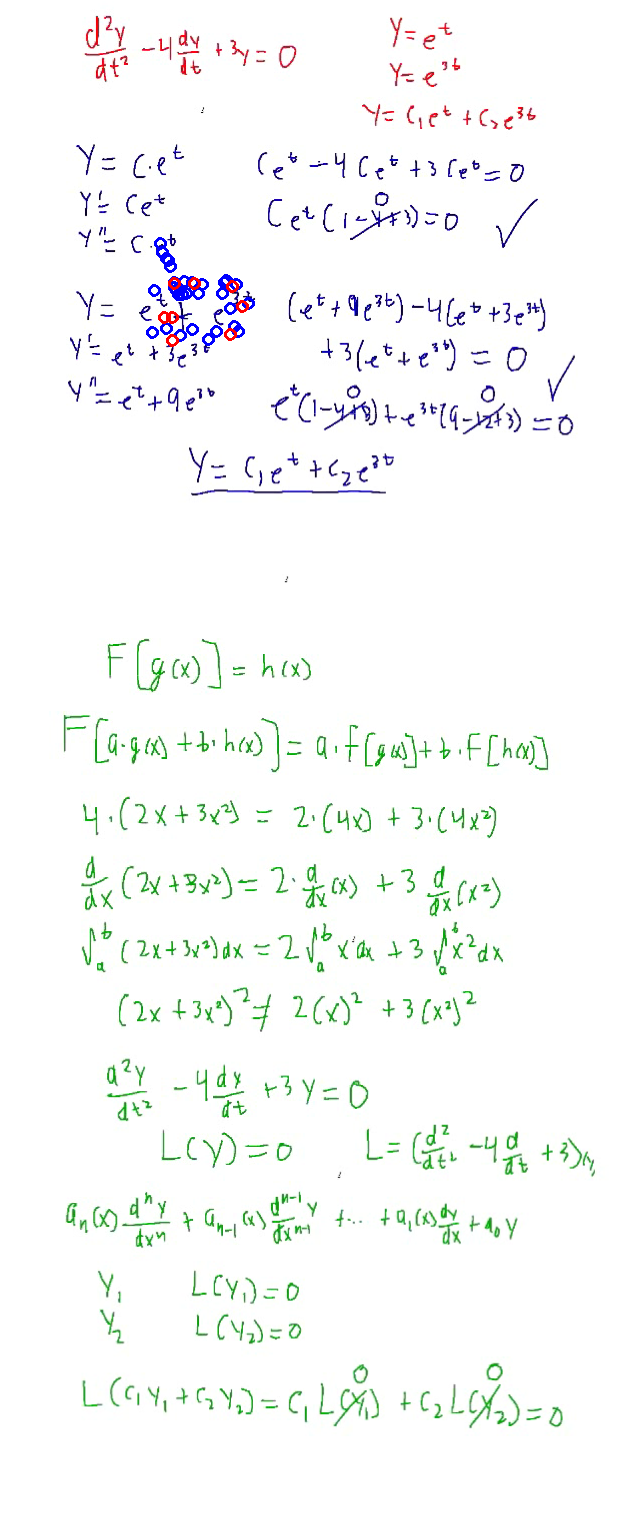 d²y/dt² - 4 dy/dt + 3y = 0
Y = e^t
Y = e^3t
Y = C₁e^t + C₂e^3t
Y = C·e^t
Ce^t - 4Ce^t + 3Ce^t = 0
Y' = Ce^t
Ce^t(1-4+3) = 0 ✓
0
Y'' = C·e^t
Y = e^t + e^3t
(e^t + 9e^3t) - 4(e^t + 3e^3t)
Y' = e^t + 3e^3t
+3(e^t + e^3t) = 0 ✓
Y'' = e^t + 9e^3t
0 0
e^t(1-4+3) + e^3t(9-12+3) = 0
Y = C₁e^t + C₂e^3t
F[g(x)] = h(x)
F[a·g(x) + b·h(x)] = a·F[g(x)] + b·F[h(x)]
4·(2x + 3x²) = 2·(4x) + 3·(4x²)
d/dx (2x + 3x²) = 2·d/dx (x) + 3 d/dx (x²)
∫ₐᵇ (2x + 3x²)dx = 2∫ₐᵇ x dx + 3∫ₐᵇ x² dx
(2x + 3x²)² ≠ 2(x)² + 3(x²)²
d²y/dt² - 4 dy/dt + 3y = 0
L(Y) = 0 L = (d²/dt² - 4 d/dt + 3)
aₙ(x) dⁿy/dxⁿ + aₙ₋₁(x) dⁿ⁻¹y/dxⁿ⁻¹ + ... + a₁(x) dy/dx + a₀y
Y₁ L(Y₁) = 0
Y₂ L(Y₂) = 0
0 0
L(C₁Y₁ + C₂Y₂) = C₁L(Y₁) + C₂L(Y₂) = 0